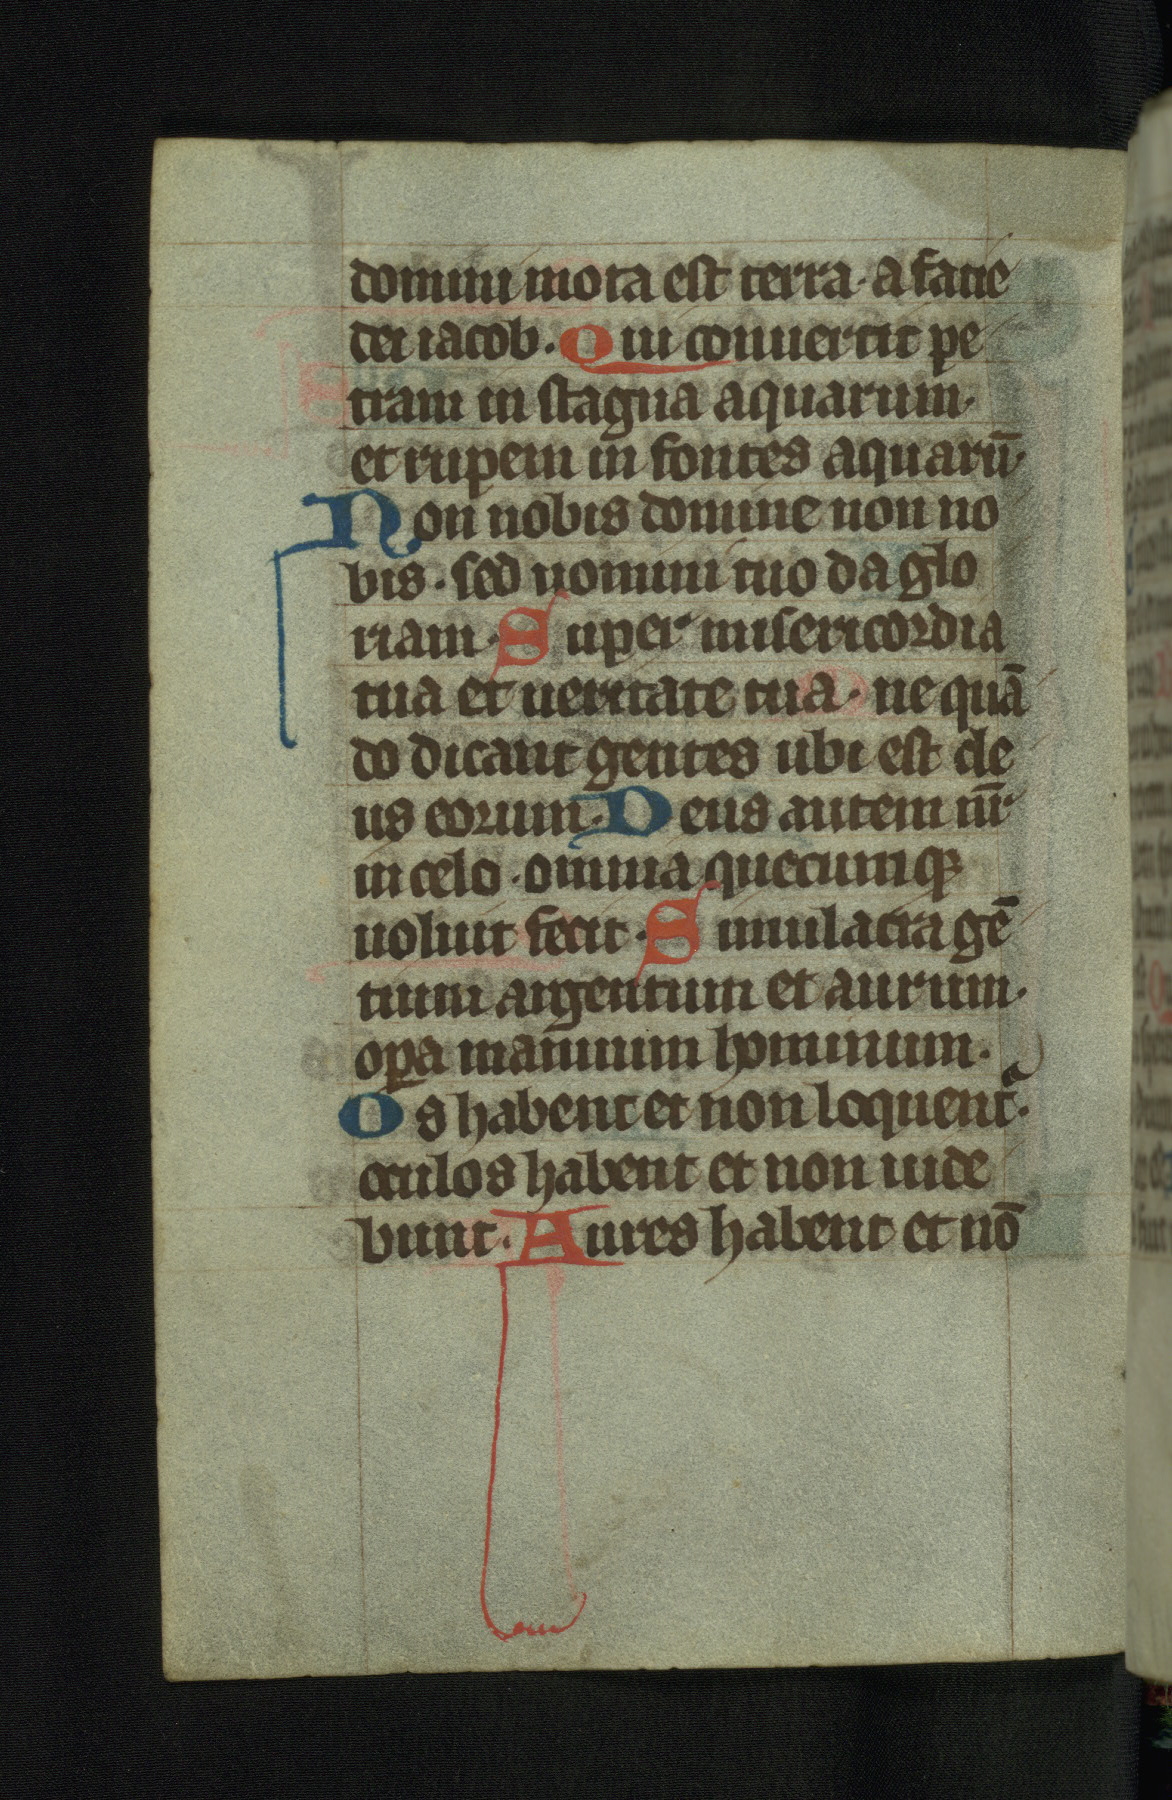 domini mota est terra · a facie
dei iacob · Qui conuertit pe
tram in stagna aquarum ·
et rupem in fontes aquarū ·
Non nobis domine non no
bis · sed nomini tuo da glo
riam · Super misericordia
tua et ueritate tua · ne quā
do dicant gentes ubi est de
us eorum · Deus autem nr̄
in celo · omnia quecumqꝫ
uoluit fecit · Simulacra gē
tium argentum et aurum ·
oꝑa manuum hominum ·
Os habent et non loquent᷑ ·
oculos habent et non uide
bunt · Aures habent et nō